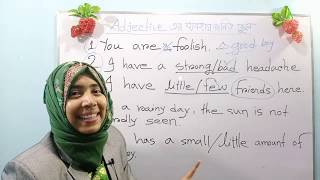 Adjective এর ব্যবহার জনিত ভুল
1 You are a foolish. a good boy
2. I have a strong/bad headache
I have little/few friends here
a rainy day, the sun is not
seen
has a small/little amount of